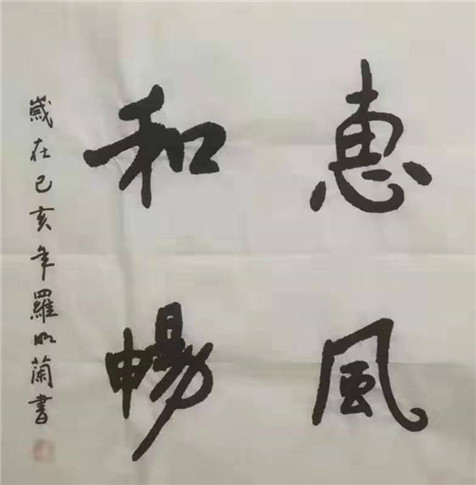 惠風
和暢
歲在己亥年羅明蘭書